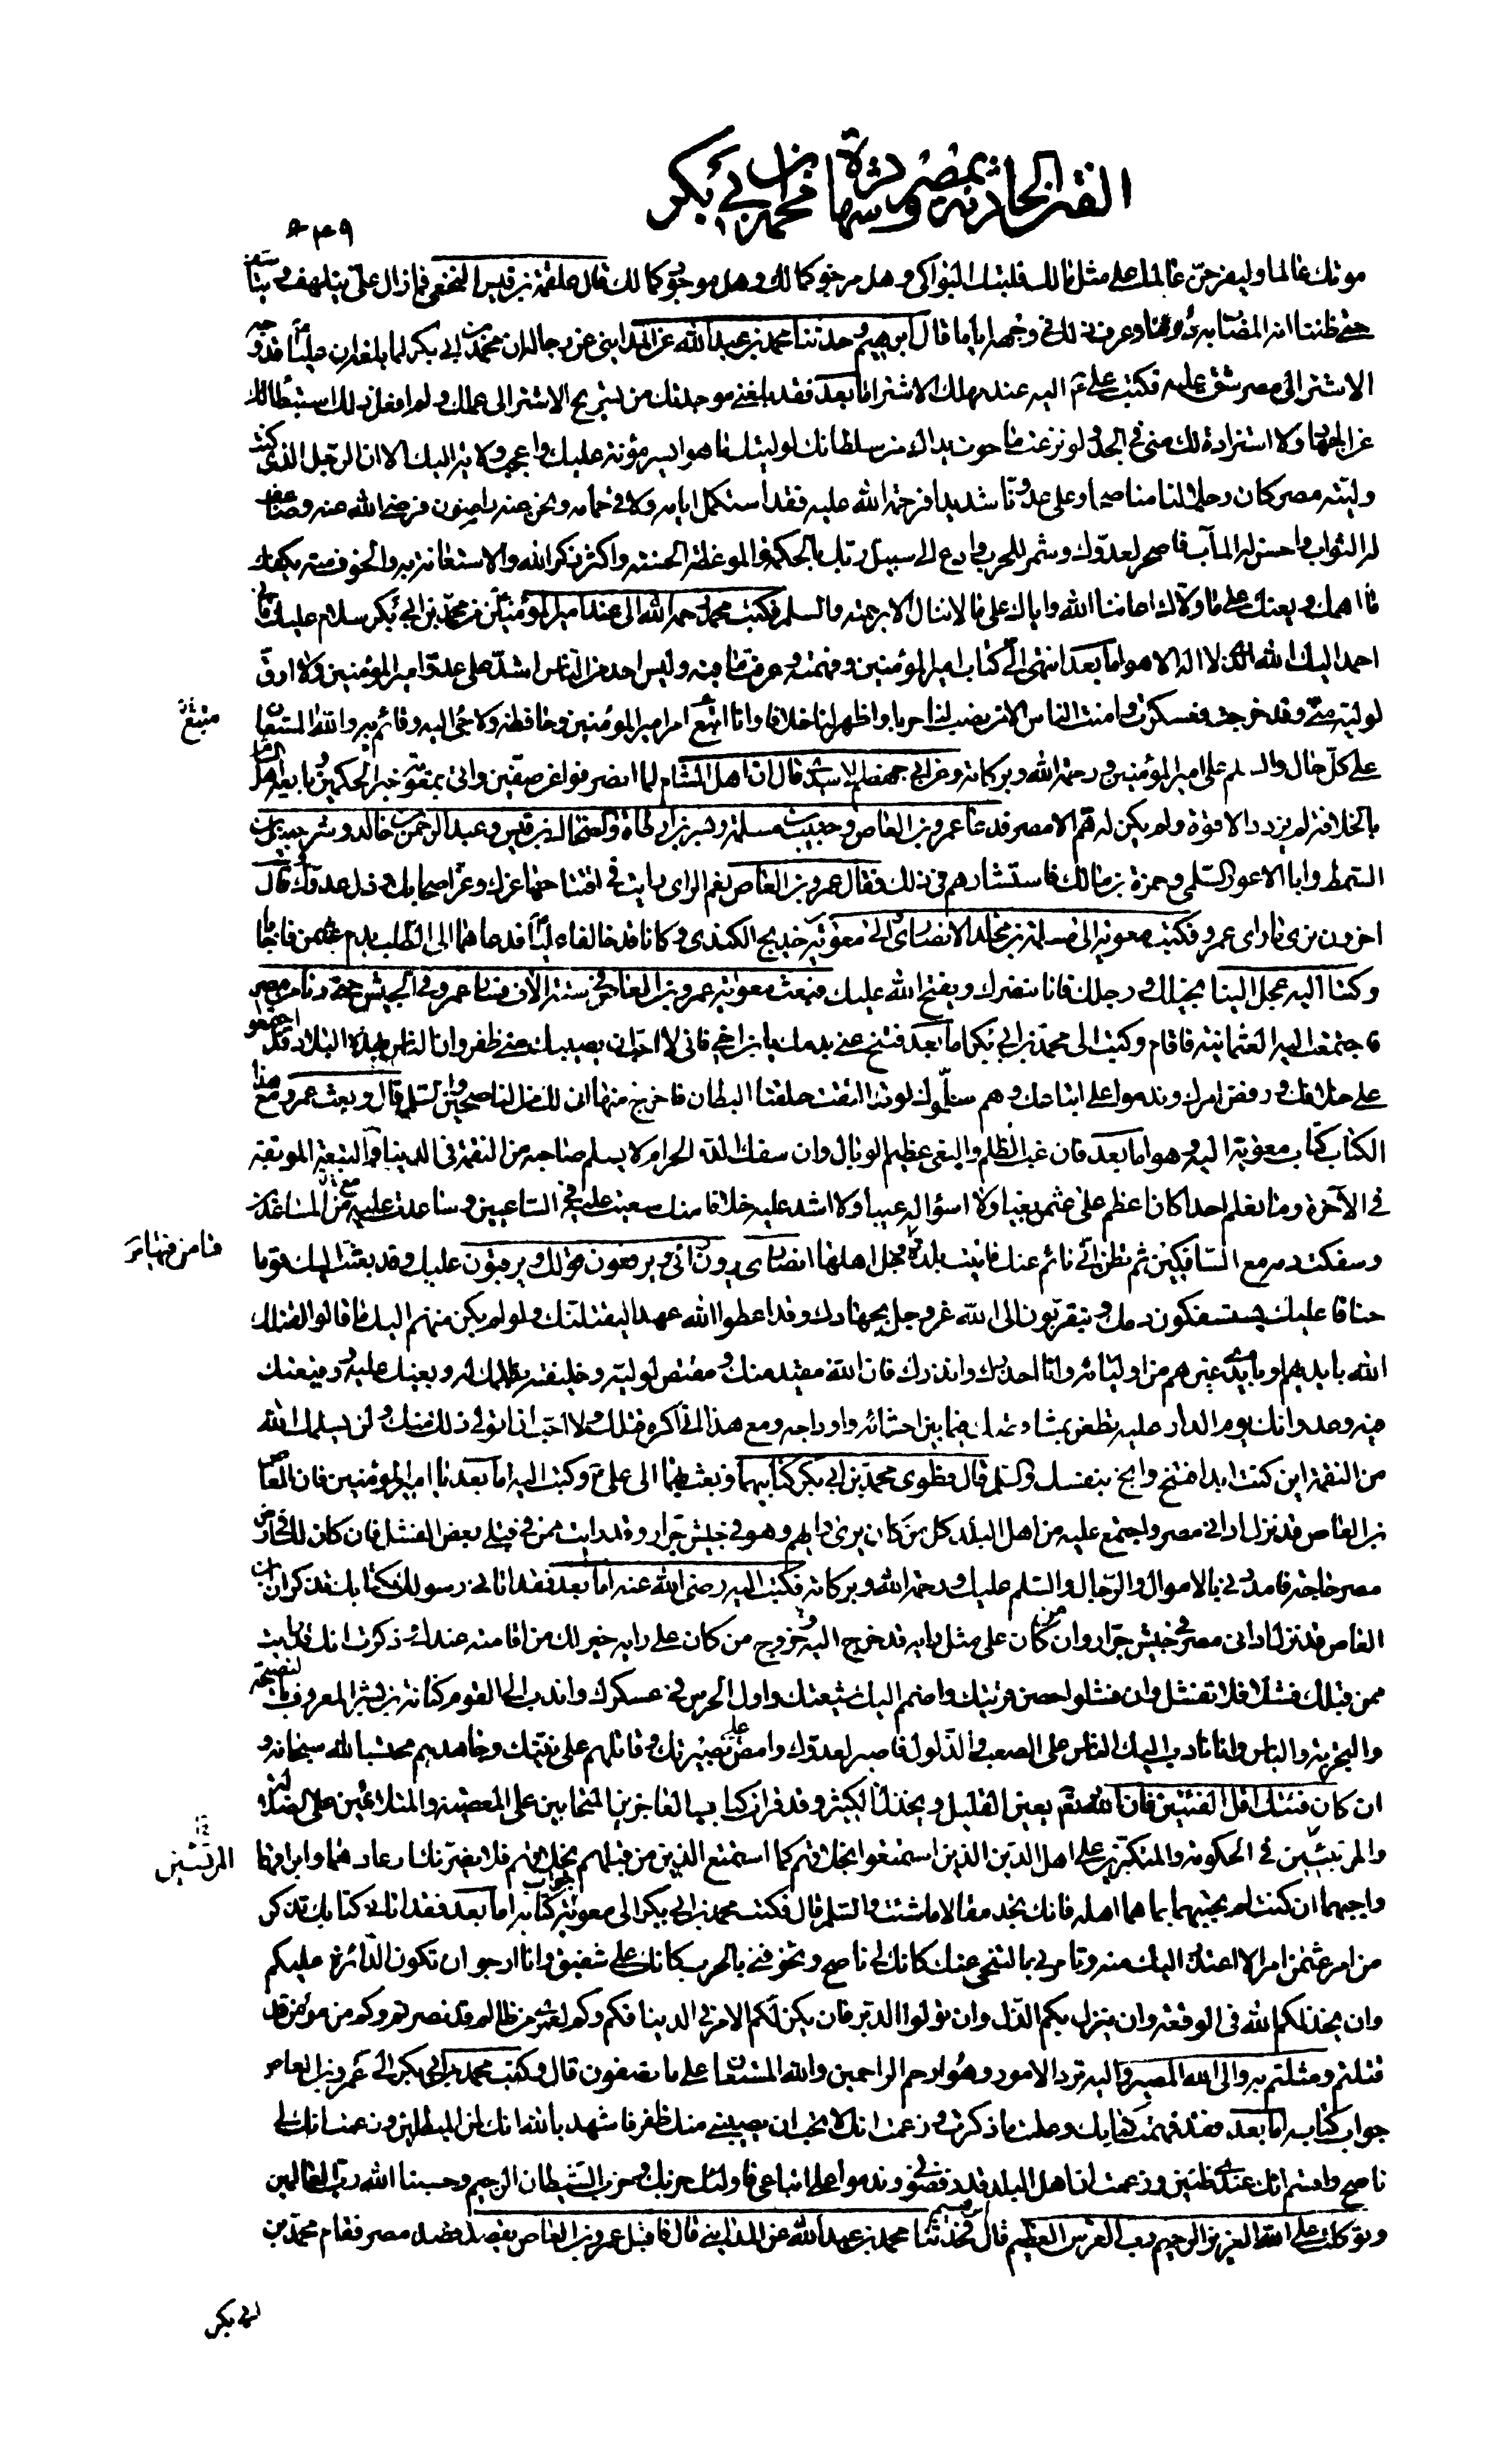 الفتن الحادثة بمصر وشهادة محمد بن أبي بكر
٦٤٩
موتك عالما وليفرحنّ عالما على مثل مالك فلتبك البواكي وهل مرجو كمالك وهل موجود كمالك قال علقمة بن قيس النخعي فما زال عليّ يتلهف و يتأسف
حتى ظننا انه المصاب به دوننا وعرف ذلك في وجهه اياما قال ابرهيم وحدثنا محمد بن عبد الله عن المدايني عن رجاله ان محمد بن ابي بكر لما بلغه ان عليّا قد وجه
الاشتر الى مصر شق عليه فكتب علي ع اليه عند مهلك الاشتر اما بعد فقد بلغني موجدتك من تسريح الاشتر الى عملك ولم افعل ذلك استبطاء لك
عن الجهاد ولا استزادة لك مني في الجد ولو نزعت ما حوت يداك من سلطانك لوليتك ما هو ايسر مؤنة عليك واعجب ولاية اليك الا ان الرجل الذي كنت
وليته مصر كان رجلا لنا مناصحا وعلى عدونا شديدا فرحمة الله عليه فقد استكمل ايامه ولاقى حمامه ونحن عنه راضون فرضي الله عنه وضاعف
له الثواب واحسن له المآب فاصحر لعدوك وشمر للحرب وادع الى سبيل ربك بالحكمة والموعظة الحسنة واكثر ذكر الله والاستعانة به والخوف منه يكفك
ما اهمك و يعنك على ما ولاك اعاننا الله واياك على ما لا ينال الا برحمته والسلم فكتب محمد رحمه الله الى عبد الله امير المؤمنين من محمد بن ابي بكر سلام عليك فاني
احمد اليك الله الذي لا اله الا هو اما بعد انتهى الي كتاب امير المؤمنين وفهمته و عرفت ما فيه وليس احد من الناس اشد على عدو امير المؤمنين ولا ارق
لوليه مني وقد خرجت فعسكرت وامنت الناس الا من نصب لنا حربا واظهر لنا خلافا وانا اتبع امر امير المؤمنين وحافظه ولاجئ اليه وقائم به والله المستعان
متبع
على كل حال والسلم على امير المؤمنين ورحمة الله وبركاته وعن ابي جهضم الاسدي قال ان اهل الشام لما انصرفوا عن صفين واتى بمعوية خبر الحكمين وبايعه اهل الشام
بالخلافة لم يزدد الا قوة ولم يكن له هم الا مصر فدعا عمرو بن العاص وحبيب بن مسلمة وبسر بن ارطاة والضحاك بن قيس وعبد الرحمن بن خالد وشرحبيل بن
السمط وابا الاعور السلمي وحمزة بن مالك فاستشارهم في ذلك فقال عمرو بن العاص نعم الراي رايت في افتتاحها عزك وعز اصحابك وذل عدوك قال
اخرون نرى ما راى عمرو فكتب معوية الى مسلمة بن مخلد الانصاري والى معوية بن خديج الكندي وكانا قد خالفا عليّا فدعاهما الى الطلب بدم عثمن فاجابا
وكتبا اليه عجل الينا بخيلك ورجلك فانا ننصرك ويفتح الله عليك فبعث معوية عمرو بن العاص في ستة الاف فسار عمرو في الجيش حتى دنا من مصر
فاجتمعت اليه العثمانية فاقام وكتب الى محمد بن ابي بكر اما بعد فتنح عني بدمك يا ابن اخي فاني لا احب ان يصيبك مني ظفر وان الناس بهذه البلاد قد اجتمعوا
على خلافك ورفض امرك وندموا على اتباعك وهم مسلموك لو قد التقت حلقتا البطان فاخرج منها اني لك لمن الناصحين والسلم قال و بعث عمرو مع هذا
الكتاب كتاب معوية اليه وهو اما بعد فان غب الظلم والبغي عظيم الوبال وان سفك الدم الحرام لا يسلم صاحبه من النقمة في الدنيا والتبعة الموبقة
في الآخرة وما نعلم احدا كان اعظم على عثمن بغيا ولا اسوأ له عيبا ولا اشد عليه خلافا منك سعيت عليه في الساعين وساعدت عليه مع المساعدين
وسفكت دمه مع السافكين ثم تظن اني نائم عنك فاتيت بلدة فحل اهلها انصاري يرون رأيي ويرفعون قولك ويرقبون عليك وقد بعثت اليك قوما
حناقا عليك يستسفكون دمك و يتقربون الى الله عز وجل بجهادك وقد اعطوا الله عهدا ليقتلنك ولو لم يكن منهم اليك ما قالوا لقتلك
الله بايديهم او بايدي غيرهم من اوليائه وانا احذرك وانذرك فان الله مقيد منك و مقتص لوليه وخليفته بظلمك له وبغيك عليه و وقيعتك
فيه وعدوانك يوم الدار عليه تطعن بمشاقصك فيما بين احشائه واوداجه ومع هذا اني اكره قتلك ولا احب ان اتولى ذلك منك ولن يسلمك الله
من النقمة اين كنت ابدا فتنح وانج بنفسك والسلم قال فطوى محمد بن ابي بكر كتابيهما وبعث بهما الى علي ع وكتب اليه اما بعد يا امير المؤمنين فان العاصي
بن العاص قد نزل اداني مصر واجتمع عليه من اهل البلد كل من كان يرى رايهم وهو في جيش جرار وقد رايت ممن قبلي بعض الفشل فان كان لك في ارض
مصر حاجة فامددني بالاموال والرجال والسلم عليك ورحمة الله وبركاته فكتب اليه رضي الله عنه اما بعد فقد اتاني رسولك بكتابك تذكر ان ابن
العاص قد نزل اداني مصر في جيش جرار وان من كان على مثل رايه قد خرج اليه و خروج من كان على رايه خير لك من اقامته عندك وذكرت انك قد رايت
ممن قبلك فشلا فلا تفشل وان فشلوا حصن قريتك واضمم اليك شيعتك واول الحرس في عسكرك واندب الى القوم كنانة بن بشر المعروف بالنصيحة
والتجربة والباس وانا نادب اليك الناس على الصعب والذلول فاصبر لعدوك وامض على بصيرتك وقاتلهم على نيتك وجاهدهم محتسبا لله سبحانه و
ان كان فئتك اقل الفئتين فان الله تعم يعين القليل ويخذل الكثير وقد قرات كتابي الفاجرين المتحابين على المعصية والمتلائمين على الضلالة
والمرتشين في الحكومة والمتكبرين على اهل الدين الذين استمتعوا بخلاقهم كما استمتع الذين من قبلهم بخلاقهم فلا يضرنك ارعادهما وابراقهما
المرتشين
واجبهما ان كنت لم تجبهما بما هما اهله فانك تجد مقالا ما شئت والسلم قال فكتب محمد بن ابي بكر الى معوية جواب كتابه اما بعد فقد اتاني كتابك تذكر
من امر عثمن امرا لا اعتذر اليك منه وتامرني بالتنحي عنك كانك لي ناصح وتخوفني بالحرب كانك علي شفيق وانا ارجو ان تكون الدائرة عليكم
وان يخذلكم الله في الوقعة وان ينزل بكم الذل وان تولوا الدبر فان يكن لكم الامر في الدنيا فكم وكم لعمري من ظالم قد نصرتم وكم من مؤمن قد
قتلتم ومثلتم به والى الله المصير واليه ترد الامور وهو ارحم الراحمين والله المستعان على ما تصفون قال وكتب محمد بن ابي بكر الى عمرو بن العاص
جواب كتابه اما بعد فقد فهمت كتابك وعلمت ما ذكرت وزعمت انك لا تحب ان يصيبني منك ظفر فاشهد بالله انك لمن المبطلين وزعمت انك لي
ناصح واقسم انك عندي ظنين وزعمت ان اهل البلد قد رفضوني وندموا على اتباعي فاولئك حزبك وحزب الشيطان الرجيم وحسبنا الله رب العالمين
وتوكلت على الله العزيز الرحيم رب العرش العظيم قال ابرهيم فحدثنا محمد بن عبد الله عن المدايني قال فاقبل عمرو بن العاص يقصد قصد مصر فقام محمد بن
ابي بكر